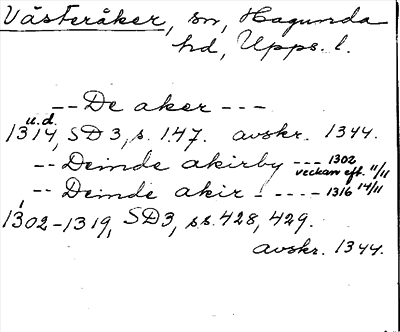 Västeråker, sn, Hagunda
hd, Upps. l.
-- De aker ---
u.d.
1314, SD 3, s. 147. avskr. 1344.
-- Deinde akirby --- 1302
veckan eft. 11/11
-- Deinde akir - ---- 1316 14/11
1302-1319, SD3, s.s. 428, 429.
avskr. 1344.